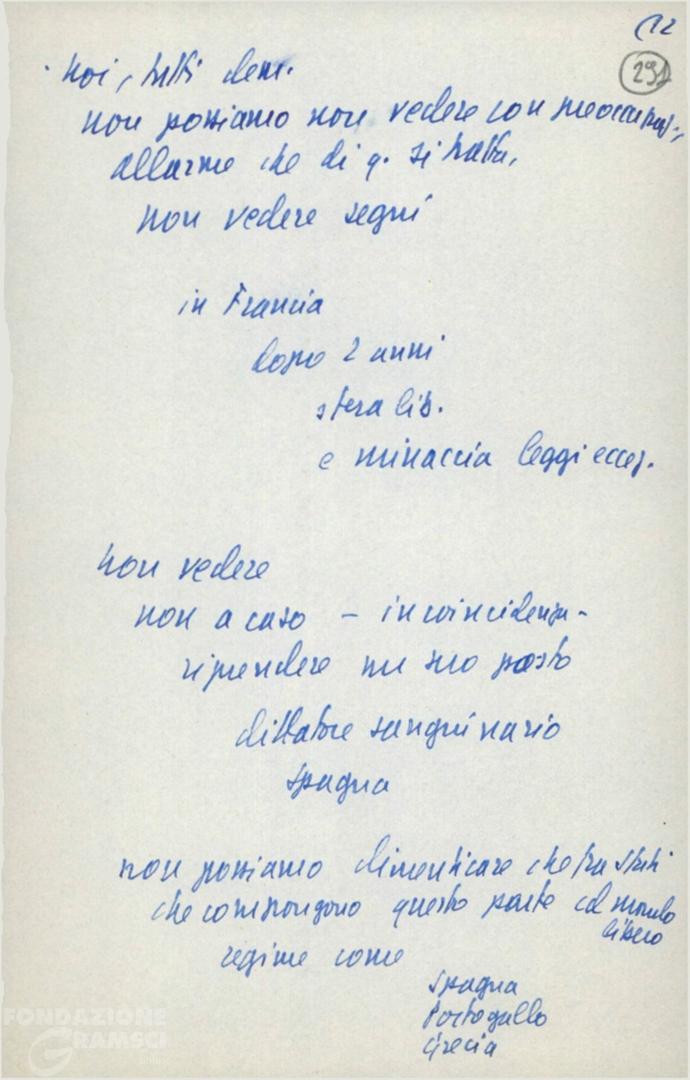 12
291
noi, tutti dem.
non possiamo non vedere con preoccupaz.,
allarme che di q. si tratta,
non vedere segni
in Francia
dopo 2 anni
sfera lib.
e minaccia leggi eccez.
non vedere
non a caso – in coincidenza –
riprendere un suo posto
dittatore sanguinario
Spagna
non possiamo dimenticare che fra Stati
che compongono questo parte cd mondo
libero
regime come
Spagna
Portogallo
Grecia
FONDAZIONE
GRAMSCI